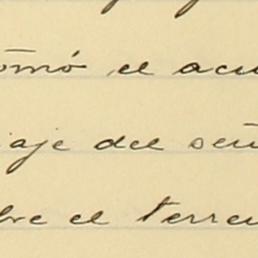 tomó el acu
iaje del señ
bre el terren